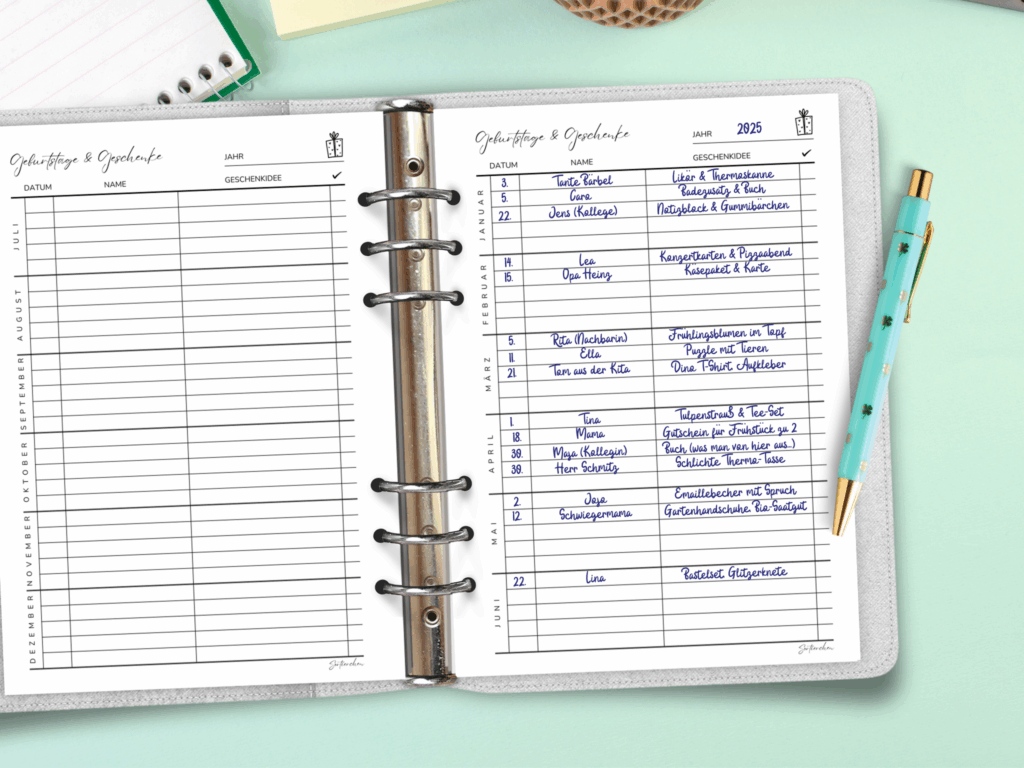 Geburtstage & Geschenke
JAHR
DATUM NAME GESCHENKIDEE ✓
JULI
AUGUST
SEPTEMBER
OKTOBER
NOVEMBER
DEZEMBER
Geburtstage & Geschenke
JAHR 2025
DATUM NAME GESCHENKIDEE ✓
JANUAR
3. Tante Bärbel Likör & Thermoskanne
5. Cora Badezusatz & Buch
22. Jens (Kollege) Notizblock & Gummibärchen
FEBRUAR
14. Lea Konzertkarten & Pizzaabend
15. Opa Heinz Käsepaket & Karte
MÄRZ
5. Rita (Nachbarin) Frühlingsblumen im Topf
11. Ella Puzzle mit Tieren
21. Tom aus der Kita Dino T-Shirt, Aufkleber
APRIL
1. Tina Tulpenstrauß & Tee-Set
18. Mama Gutschein für Frühstück zu 2
30. Maja (Kollegin) Buch (was man von hier aus..)
30. Herr Schmitz Schlichte Thermo-Tasse
MAI
2. Jojo Emaillebecher mit Spruch
12. Schwiegermama Gartenhandschuhe, Bio-Saatgut
JUNI
22. Lina Bastelset, Glitzerknete